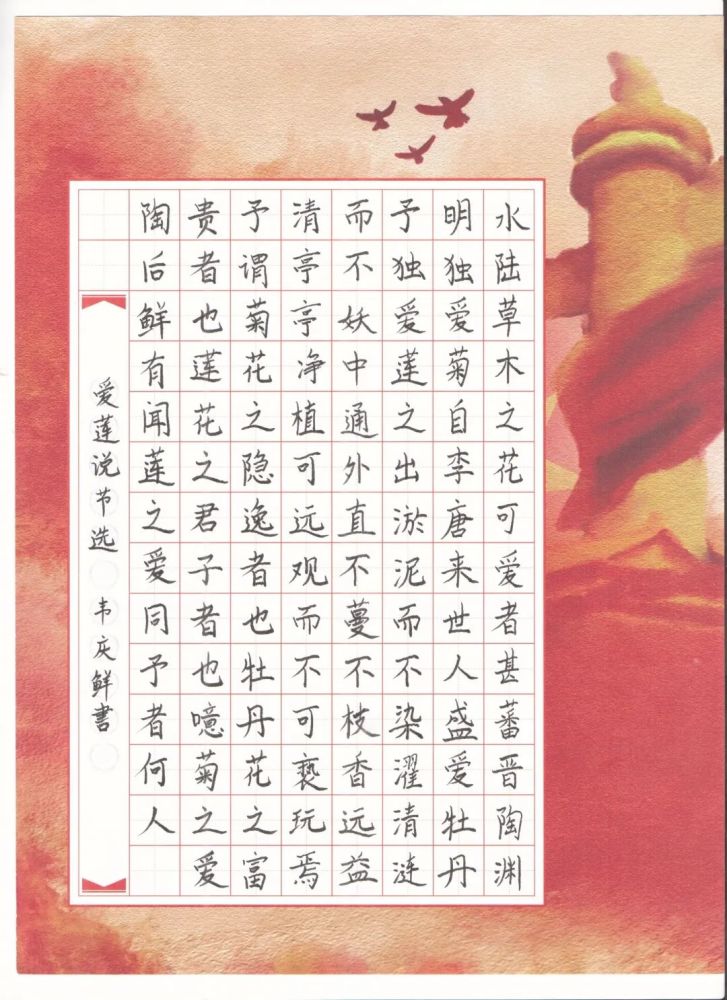 水陆草木之花可爱者甚蕃晋陶渊
明独爱菊自李唐来世人盛爱牡丹
予独爱莲之出淤泥而不染濯清涟
而不妖中通外直不蔓不枝香远益
清亭亭净植可远观而不可亵玩焉
予谓菊花之隐逸者也牡丹花之富
贵者也莲花之君子者也噫菊之爱
陶后鲜有闻莲之爱同予者何人
爱莲说节选 韦鲜書